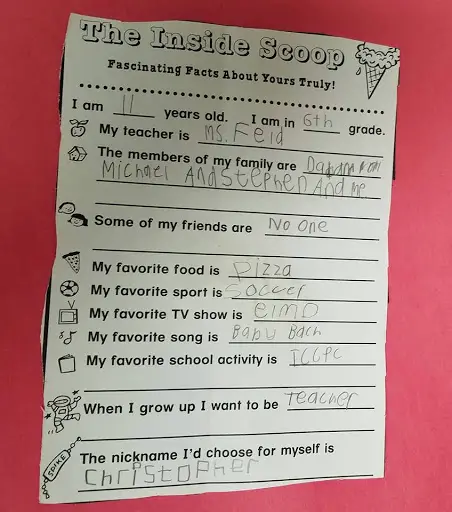 The Inside Scoop
Fascinating Facts About Yours Truly!
I am 11 years old. I am in 6th grade.
My teacher is Ms. Feid
The members of my family are
Michael And Stephen And me
Some of my friends are No one
My favorite food is pizza
My favorite sport is Soccer
My favorite TV show is elmo
My favorite song is Baby Bach
My favorite school activity is
When I grow up I want to be Teacher
SPIKE
The nickname I'd choose for myself is
Christopher